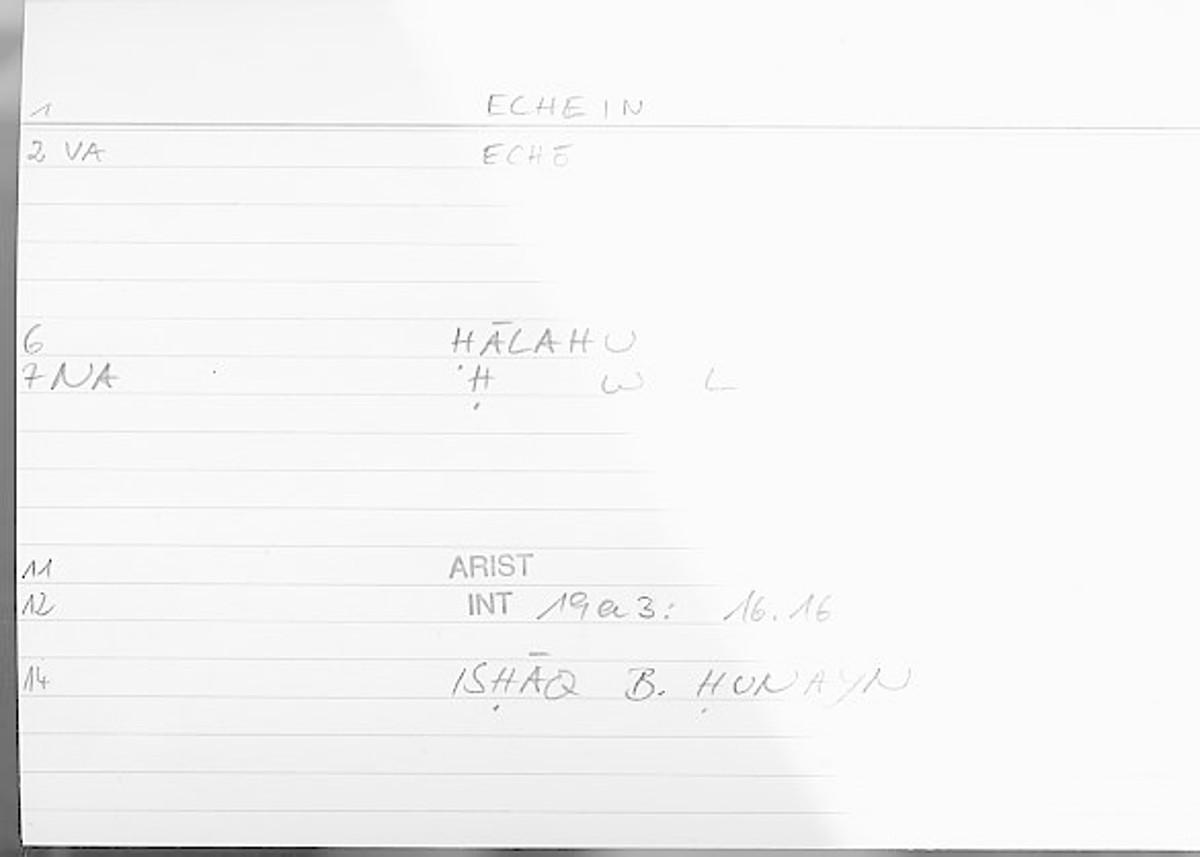 1 ECHEIN
2 VA ECHE
6 HĀLAHU
7 NA Ḥ W L
11 ARIST
12 INT 19a3: 16.16
14 ISḤĀQ B. ḤUNAYN